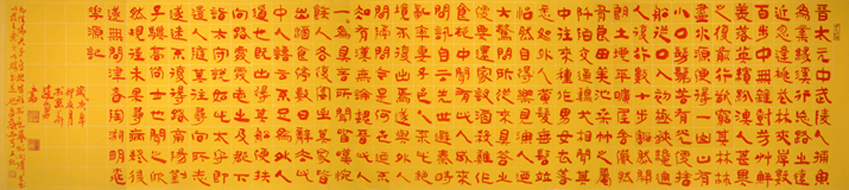 晉太元中武陵人捕魚
為業緣溪行忘路之遠
近忽逢桃花林夾岸數
百步中無雜樹芳草鮮
美落英繽紛漁人甚異
之復前行欲窮其林林
盡水源便得一山山有
小口髣髴若有光便捨
船從口入初極狹才通
人復行數十步豁然開
朗土地平曠屋舍儼然
有良田美池桑竹之屬
阡陌交通雞犬相聞其
中往來種作男女衣著
悉如外人黃髮垂髫並
怡然自樂見漁人乃
大驚問所從來具答之
便要還家設酒殺雞作
食村中聞有此人咸來
問訊自云先世避秦時
亂率妻子邑人來此絕
境不復出焉遂與外人
間隔問今是何世乃不知
有漢無論魏晉此人一
一為具言所聞皆歎惋
餘人各復延至其家皆
出酒食停數日辭去此
中人語云不足為外人
道也既出得其船便扶
向路處處誌之及郡下
詣太守說如此太守即
遣人隨其往尋向所誌
遂迷不復得路南陽劉
子驥高尚士也聞之欣
然規往未果尋病終後
遂無問津者陶淵明桃
花源記